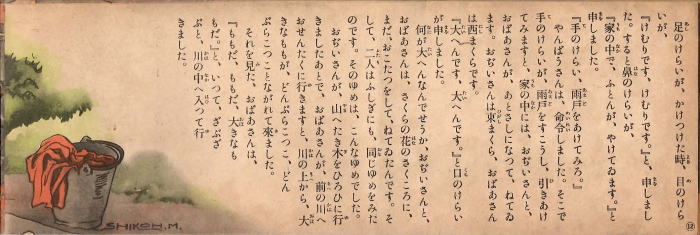 足のけらいが、かけつけた時、目のけら
いが、
『けむりです、けむりです。』と、申しまし
た。すると鼻のけらいが、
『家の中で、ふとんが、やけてゐます。』と
申しました。
『手のけらい、雨戸をあけてみろ。』
やんばうさんは、命令しました。そこで
手のけらいが、雨戸をすこうし、引きあけ
てみますと、家の中には、おぢいさんと、
おばあさんが、あとさしになつて、ねてゐ
ます。おぢいさんは東まくら、おばあさん
は西まくらです。
『大へんです、大へんです。』と口のけらい
が申しました。
何が大へんなんでせうか、おぢいさんと、
おばあさんは、さくらの花のさくころに、
まだ、おこたつをして、ねてゐたんです。そ
して、二人はふしぎにも、同じゆめをみた
のです。そのゆめは、こんなゆめでした。
おぢいさんが、山へたき木をひろひに行
きましたあとで、おばあさんが、前の川へ
おせんたくに行きますと、川の上から、大
きなももが、どんぶらこつこ、どん
ぶらこつことながれて來ました。
それを見た、おばあさんは、
『ももだ、ももだ、大きなも
もだ。』と、いつて、ざぶざ
ぶと、川の中へ入つて行
きました。
SHIKOH.M.